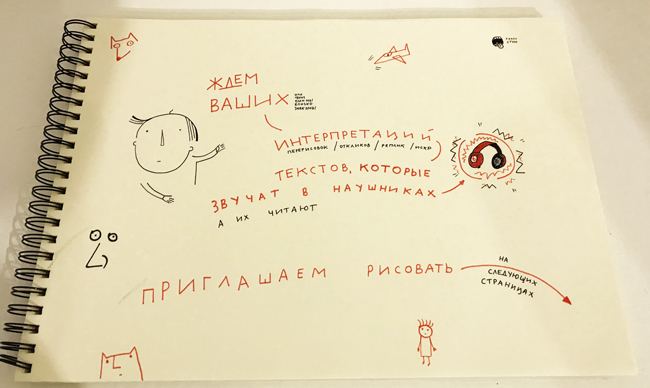 ЖДЕМ
ВАШИХ
ИНТЕРПРЕТАЦИЙ
ПЕРЕРИСОВОК / ОТКЛИКОВ / РЕПЛИК /
ТЕКСТОВ, КОТОРЫЕ
ЗВУЧАТ В НАУШНИКАХ
А ИХ ЧИТАЮТ
ПРИГЛАШАЕМ РИСОВАТЬ
НА
СЛЕДУЮЩИХ
СТРАНИЦАХ